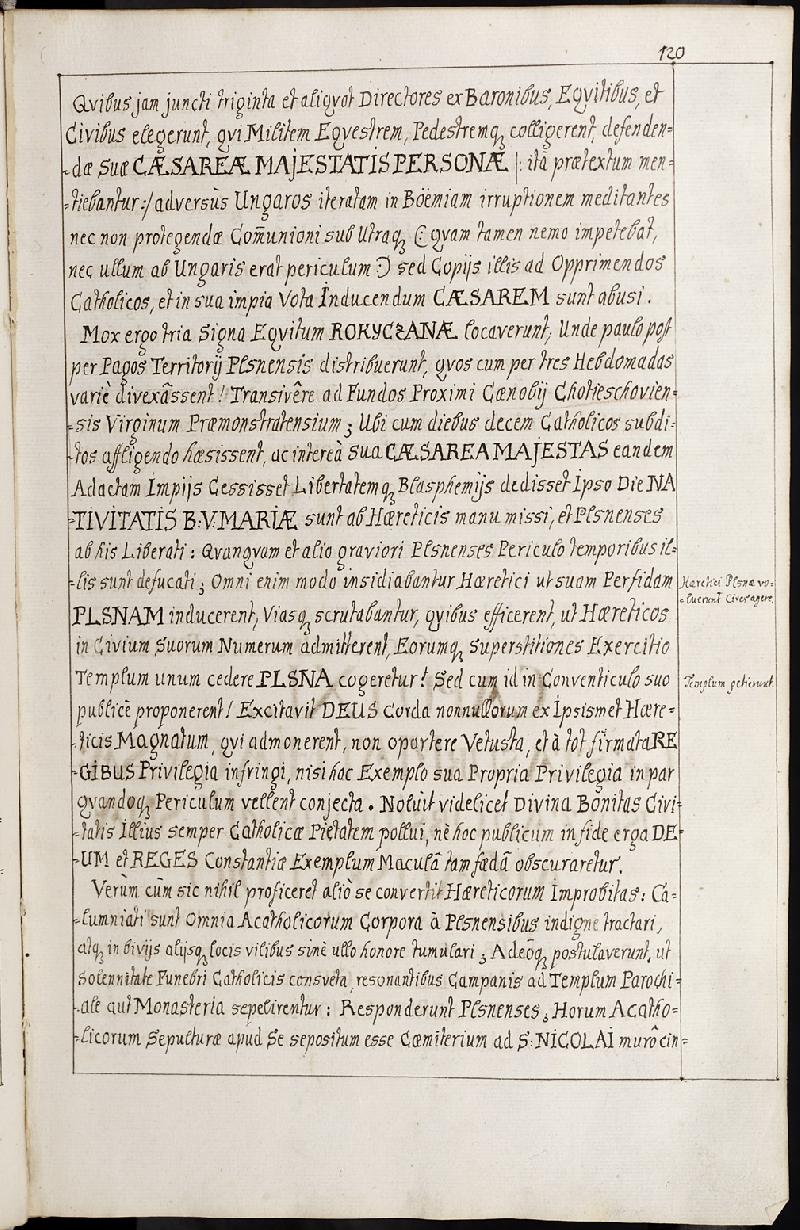 120
Qvibus jam juncti triginta et aliqvot Directores ex Baronibus, Eqvitibus, et
Civibus elegerunt, qvi Militem Eqvestrem, Pedestremq₃ colligerent, defenden=
=dæ Suæ CÆSAREÆ MAJESTATIS PERSONÆ |: ità prætextum men=
=tiebantur :/ adversùs Ungaros iteratam in Boëmiam irruptionem meditantes
nec non protegendæ Com̃unioni sub Utraq₃ (: qvam tamen nemo impetebat,
nec ullum ab Ungaris erat periculum :) sed Copijs illis ad Opprimendos
Catholicos, et in sua impia Vota Inducendum CÆSAREM sunt abusi.
Mox ergo tria Signa Eqvitum ROKYCZANÆ locaverunt, Unde paulo post
per Pagos Territorij Plsnensis distribuerunt, qvos cum per tres Hebdomadas
variè divexâssent! Transivêre ad Fundos Proximi Cænobij Chotieschovien=
=sis Virginum Præmonstratensium; Ubi cum diebus decem Catholicos subdi=
=tos affligendo hæsissent, ac intereà sua CÆSAREA MAJESTAS eandem
Adactam Impijs Cessisset Libertatemq₃ Blasphemijs dedisset Ipso Die NA
=TIVITATIS B: V. MARIÆ sunt ab Hæreticis manu missi, et Plsnenses
ab his Liberati: Qvanqvam et alio graviori Plsnenses Periculo temporibus il=
=lis sunt defucati; Omni enim modo insidiabantur Hæretici ut suam Perfidam
PLSNAM inducerent, Viasq₃ scrutabantur, qvibus efficerent, ut Hæreticos
in Civium Suorum Numerum admitterent, Eorumq₃ Superstitiones Exercitio
Templum unum cedere PLSNA cogeretur! Sed cum id in Conventiculo suo
publicè proponerent! Excitavit DEUS Corda nonnullorum ex Ipsismet Hære=
=ticis Magnatum, qvi admonerent, non oportere Vetusta, et à tot firmata RE
=GIBUS Privilegia infringi, nisi hoc Exemplo sua Propria Privilegia in par
qvandoq₃ Periculum vellent conjecta. Noluit videlicet Divina Bonitas Civi=
=tatis Illius semper Catholicæ Pietatem pollui, nè hoc publicum in fide erga DE=
=UM et REGES Constantiæ Exemplum Maculâ tam fædâ obscuraretur.
Verùm cùm sic nihil proficeret aliò se convertit Hæreticorum Improbitas: Ca=
=lumniati sunt Omnia Acatholicorum Corpora à Plsnensibus indignè tractari,
atq₃ in bivijs alijsq₃ locis vilibus sinè ullo honore tumulari; Adeóq₃ postulaverunt, ut
Solennitate Funebri Catholicis consveta, resonantibus Campanis ad Templum Parochi=
=ale aut Monasteria sepelirentur: Responderunt Plsnenses, Horum Acatho=
=licorum Sepulturæ apud Se sepositum esse Cæmiterium ad S: NICOLAI murô cin=
Hæretici Plsnæ vo=
=luerunt Cives agere.
Templum petierunt